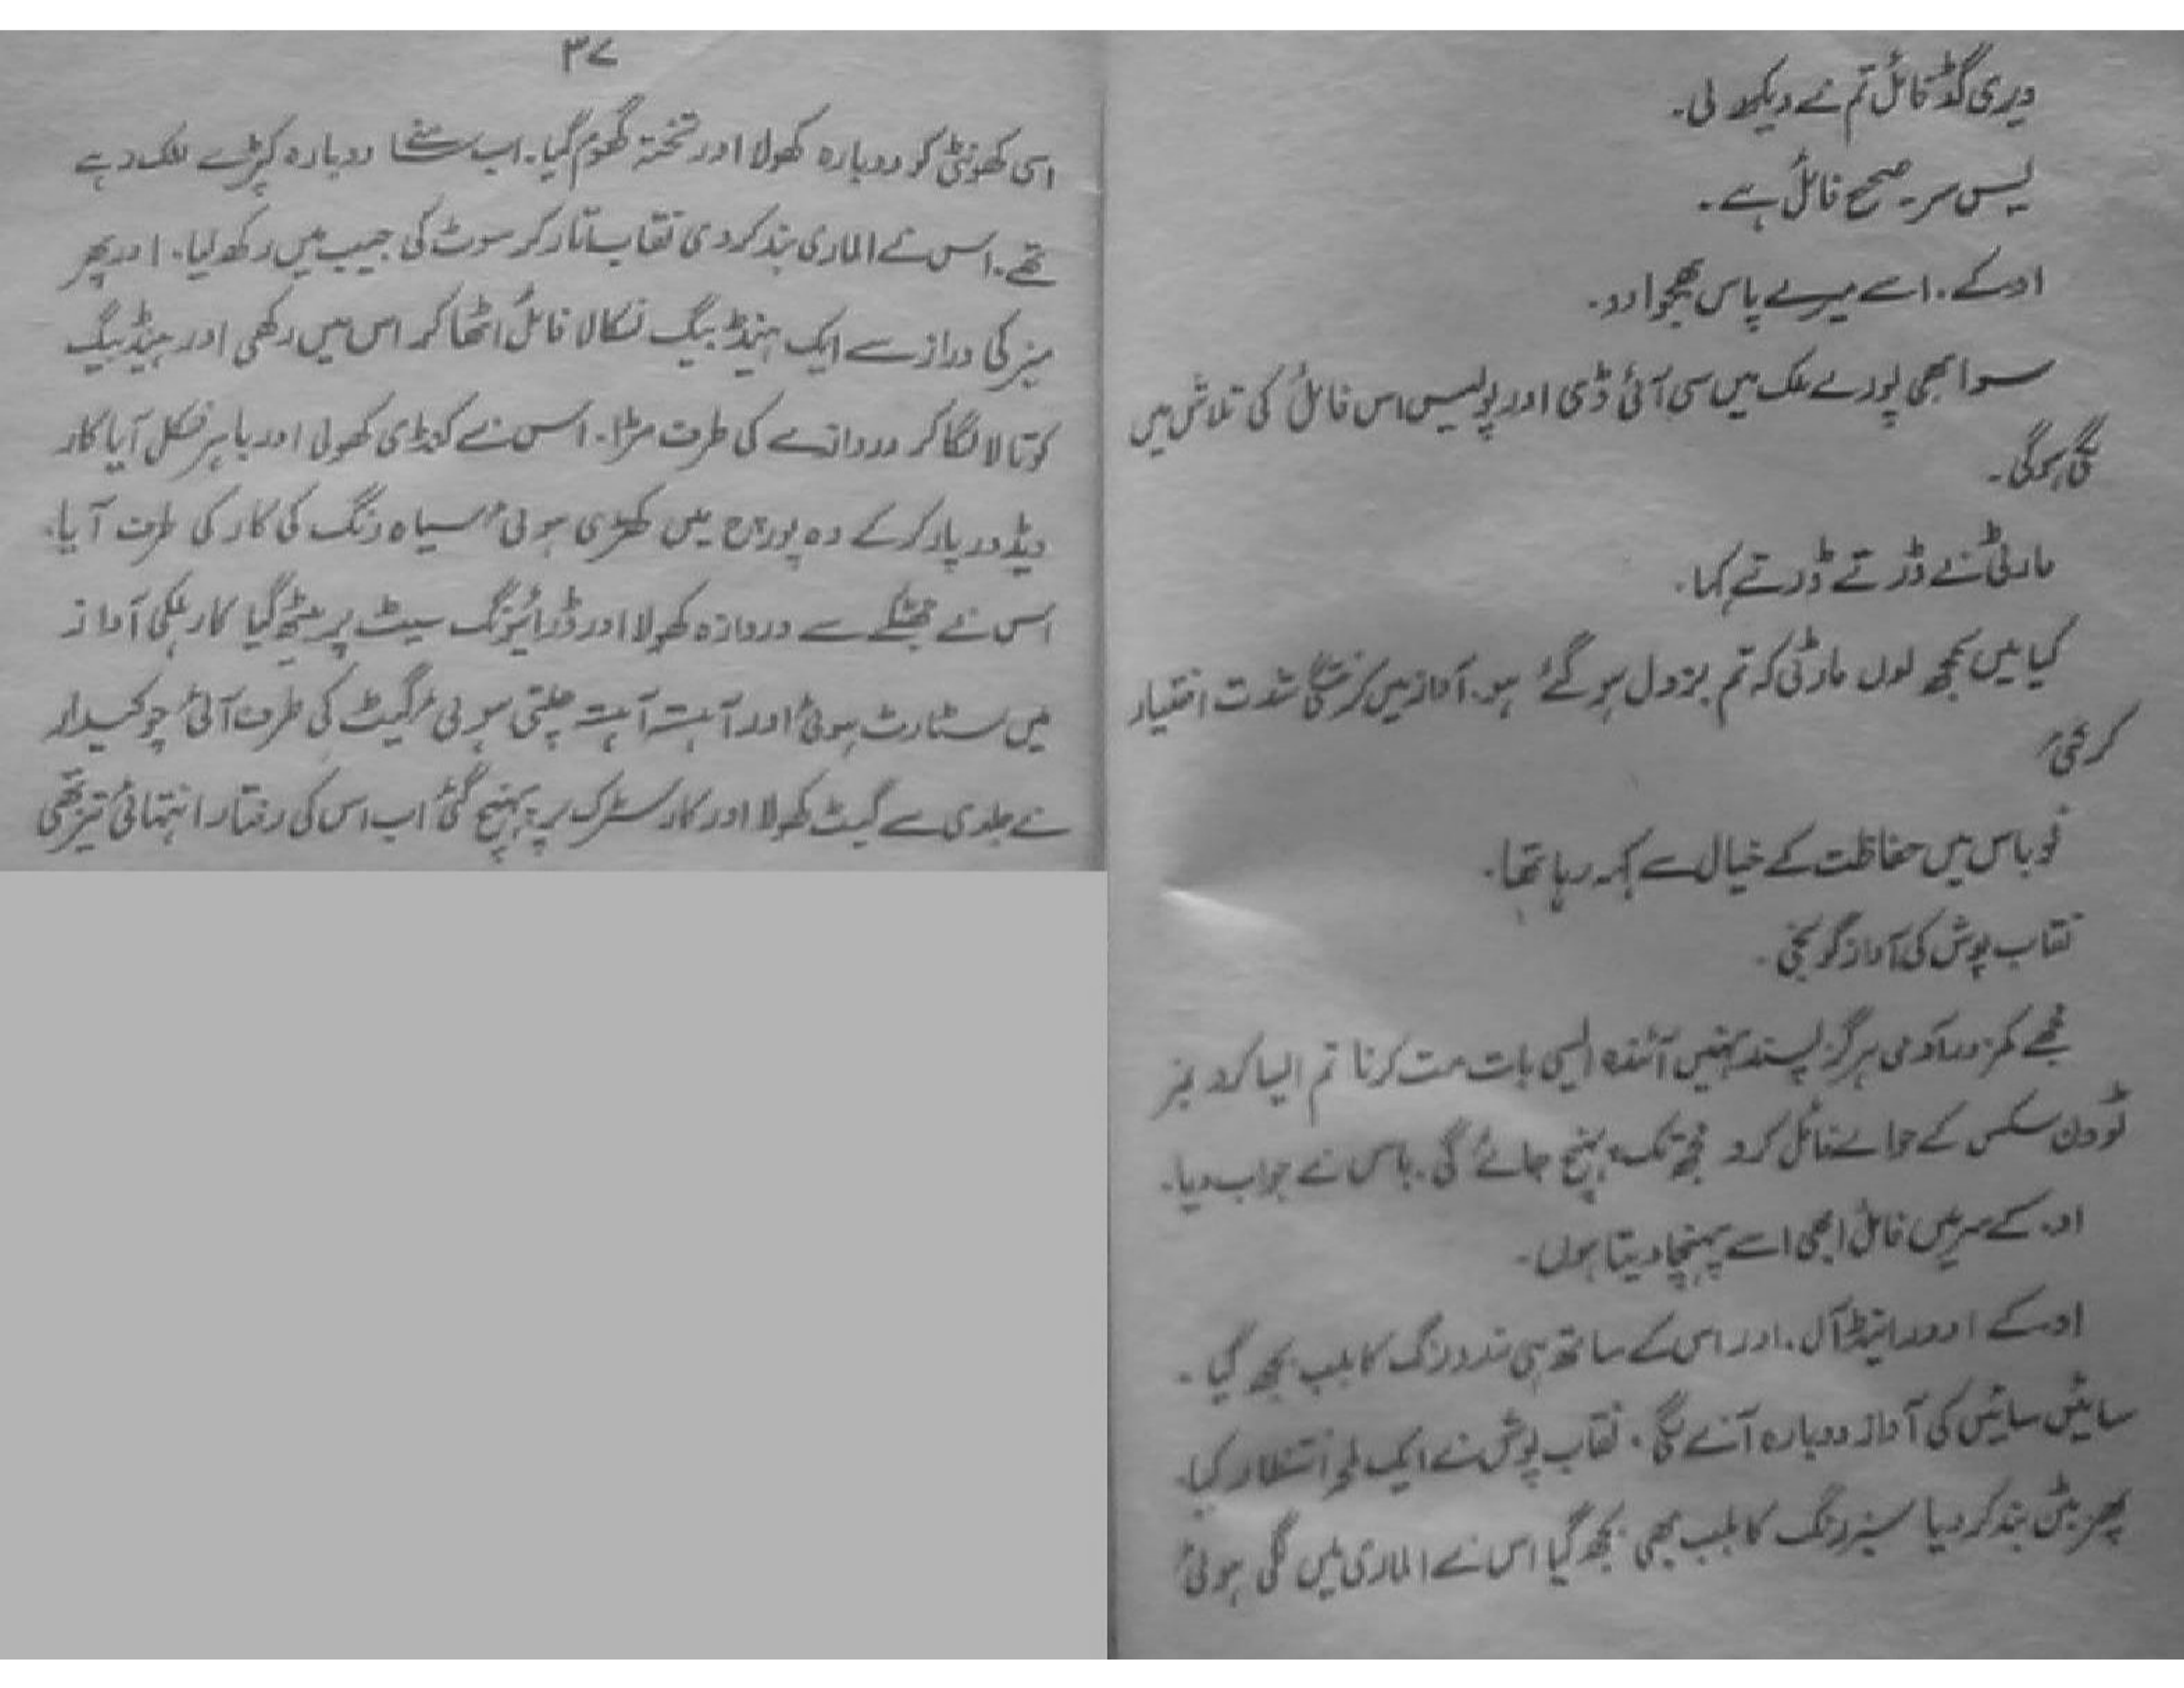 ویری گڈ فائل تم نے دیکھ لی۔
یس سر۔ صحیح فائل ہے۔
اوکے۔ اسے میرے پاس بھجوا دو۔
سوا بھی پورے ملک میں سی آئی ڈی اور پولیس اس فائل کی تلاش میں
لگی ہوگی۔
مارٹی نے ڈرتے ڈرتے کہا۔
کیا میں سمجھ لوں مارٹی کہ تم بزدل ہو گئے ہو۔ آواز میں کرختگی شدت اختیار
کر گئی
نو باس میں حفاظت کے خیال سے کہہ رہا تھا۔
نقاب پوش کی آواز گونجی۔
مجھے کمزور آدمی ہرگز پسند نہیں آئندہ ایسی بات مت کرنا تم ایسا کرو نمبر
ٹو ون سکس کے حوالے فائل کرو مجھ تک پہنچ جائے گی۔ باس نے جواب دیا۔
او۔ کے سر میں فائل ابھی اسے پہنچا دیتا ہوں۔
اوکے اوور اینڈ آل۔ اور اس کے ساتھ ہی زرد رنگ کا بلب بجھ گیا۔
سائیں سائیں کی آواز دوبارہ آنے لگی۔ نقاب پوش نے ایک لمحہ انتظار کیا۔
پھر بٹن بند کر دیا سبز رنگ کا بلب بھی بجھ گیا اس نے الماری میں لگی ہوئی
۳۷
اسی کھونٹی کو دوبارہ کھولا اور تختہ گھوم گیا۔ اب سامنے دوبارہ کپڑے لٹک رہے
تھے۔ اس نے الماری بند کر دی نقاب اتار کر سوٹ کی جیب میں رکھ لیا۔ اور پھر
میز کی دراز سے ایک ہینڈ بیگ نکالا فائل اٹھا کر اس میں رکھی اور ہینڈ بیگ
کو تالا لگا کر دروازے کی طرف مڑا۔ اس نے کنڈی کھولی اور باہر نکل آیا کار
یڈور پار کر کے وہ پورچ میں کھڑی ہوئی سیاہ رنگ کی کار کی طرف آیا۔
اس نے جھٹکے سے دروازہ کھولا اور ڈرائیونگ سیٹ پر بیٹھ گیا کار ہلکی آواز
میں سٹارٹ ہوئی اور آہستہ آہستہ چلتی ہوئی گیٹ کی طرف آئی چوکیدار
نے جلدی سے گیٹ کھولا اور کار سڑک پر پہنچ گئی اب اس کی رفتار انتہائی تیز تھی